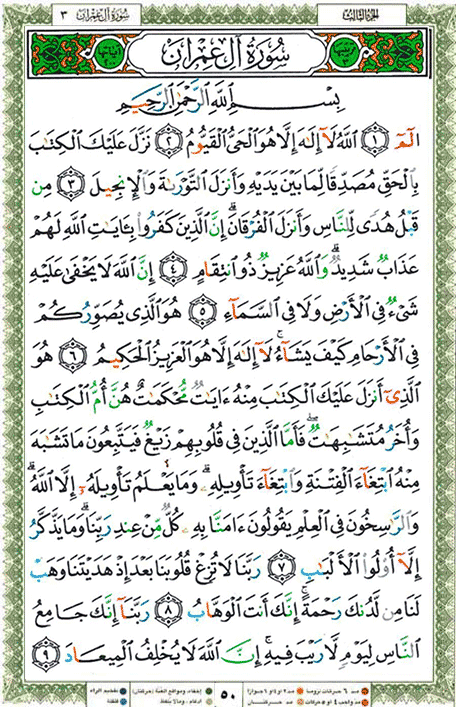 الجزء الثالث سورة آل عمران ٣
سورة آل عمران
بسم الله الرحمن الرحيم
الٓمٓ ۝١ ٱللَّهُ لَآ إِلَٰهَ إِلَّا هُوَ ٱلْحَىُّ ٱلْقَيُّومُ ۝٢ نَزَّلَ عَلَيْكَ ٱلْكِتَٰبَ
بِٱلْحَقِّ مُصَدِّقًا لِّمَا بَيْنَ يَدَيْهِ وَأَنزَلَ ٱلتَّوْرَىٰةَ وَٱلْإِنجِيلَ ۝٣ مِن
قَبْلُ هُدًى لِّلنَّاسِ وَأَنزَلَ ٱلْفُرْقَانَ ۗ إِنَّ ٱلَّذِينَ كَفَرُوا۟ بِـَٔايَٰتِ ٱللَّهِ لَهُمْ
عَذَابٌ شَدِيدٌ ۗ وَٱللَّهُ عَزِيزٌ ذُو ٱنتِقَامٍ ۝٤ إِنَّ ٱللَّهَ لَا يَخْفَىٰ عَلَيْهِ
شَىْءٌ فِى ٱلْأَرْضِ وَلَا فِى ٱلسَّمَآءِ ۝٥ هُوَ ٱلَّذِى يُصَوِّرُكُمْ
فِى ٱلْأَرْحَامِ كَيْفَ يَشَآءُ ۚ لَآ إِلَٰهَ إِلَّا هُوَ ٱلْعَزِيزُ ٱلْحَكِيمُ ۝٦ هُوَ
ٱلَّذِىٓ أَنزَلَ عَلَيْكَ ٱلْكِتَٰبَ مِنْهُ ءَايَٰتٌ مُّحْكَمَٰتٌ هُنَّ أُمُّ ٱلْكِتَٰبِ
وَأُخَرُ مُتَشَٰبِهَٰتٌ ۖ فَأَمَّا ٱلَّذِينَ فِى قُلُوبِهِمْ زَيْغٌ فَيَتَّبِعُونَ مَا تَشَٰبَهَ
مِنْهُ ٱبْتِغَآءَ ٱلْفِتْنَةِ وَٱبْتِغَآءَ تَأْوِيلِهِۦ ۗ وَمَا يَعْلَمُ تَأْوِيلَهُۥٓ إِلَّا ٱللَّهُ ۗ
وَٱلرَّٰسِخُونَ فِى ٱلْعِلْمِ يَقُولُونَ ءَامَنَّا بِهِۦ كُلٌّ مِّنْ عِندِ رَبِّنَا ۗ وَمَا يَذَّكَّرُ
إِلَّآ أُو۟لُوا۟ ٱلْأَلْبَٰبِ ۝٧ رَبَّنَا لَا تُزِغْ قُلُوبَنَا بَعْدَ إِذْ هَدَيْتَنَا وَهَبْ
لَنَا مِن لَّدُنكَ رَحْمَةً ۚ إِنَّكَ أَنتَ ٱلْوَهَّابُ ۝٨ رَبَّنَآ إِنَّكَ جَامِعُ
ٱلنَّاسِ لِيَوْمٍ لَّا رَيْبَ فِيهِ ۚ إِنَّ ٱللَّهَ لَا يُخْلِفُ ٱلْمِيعَادَ ۝٩
٥٠